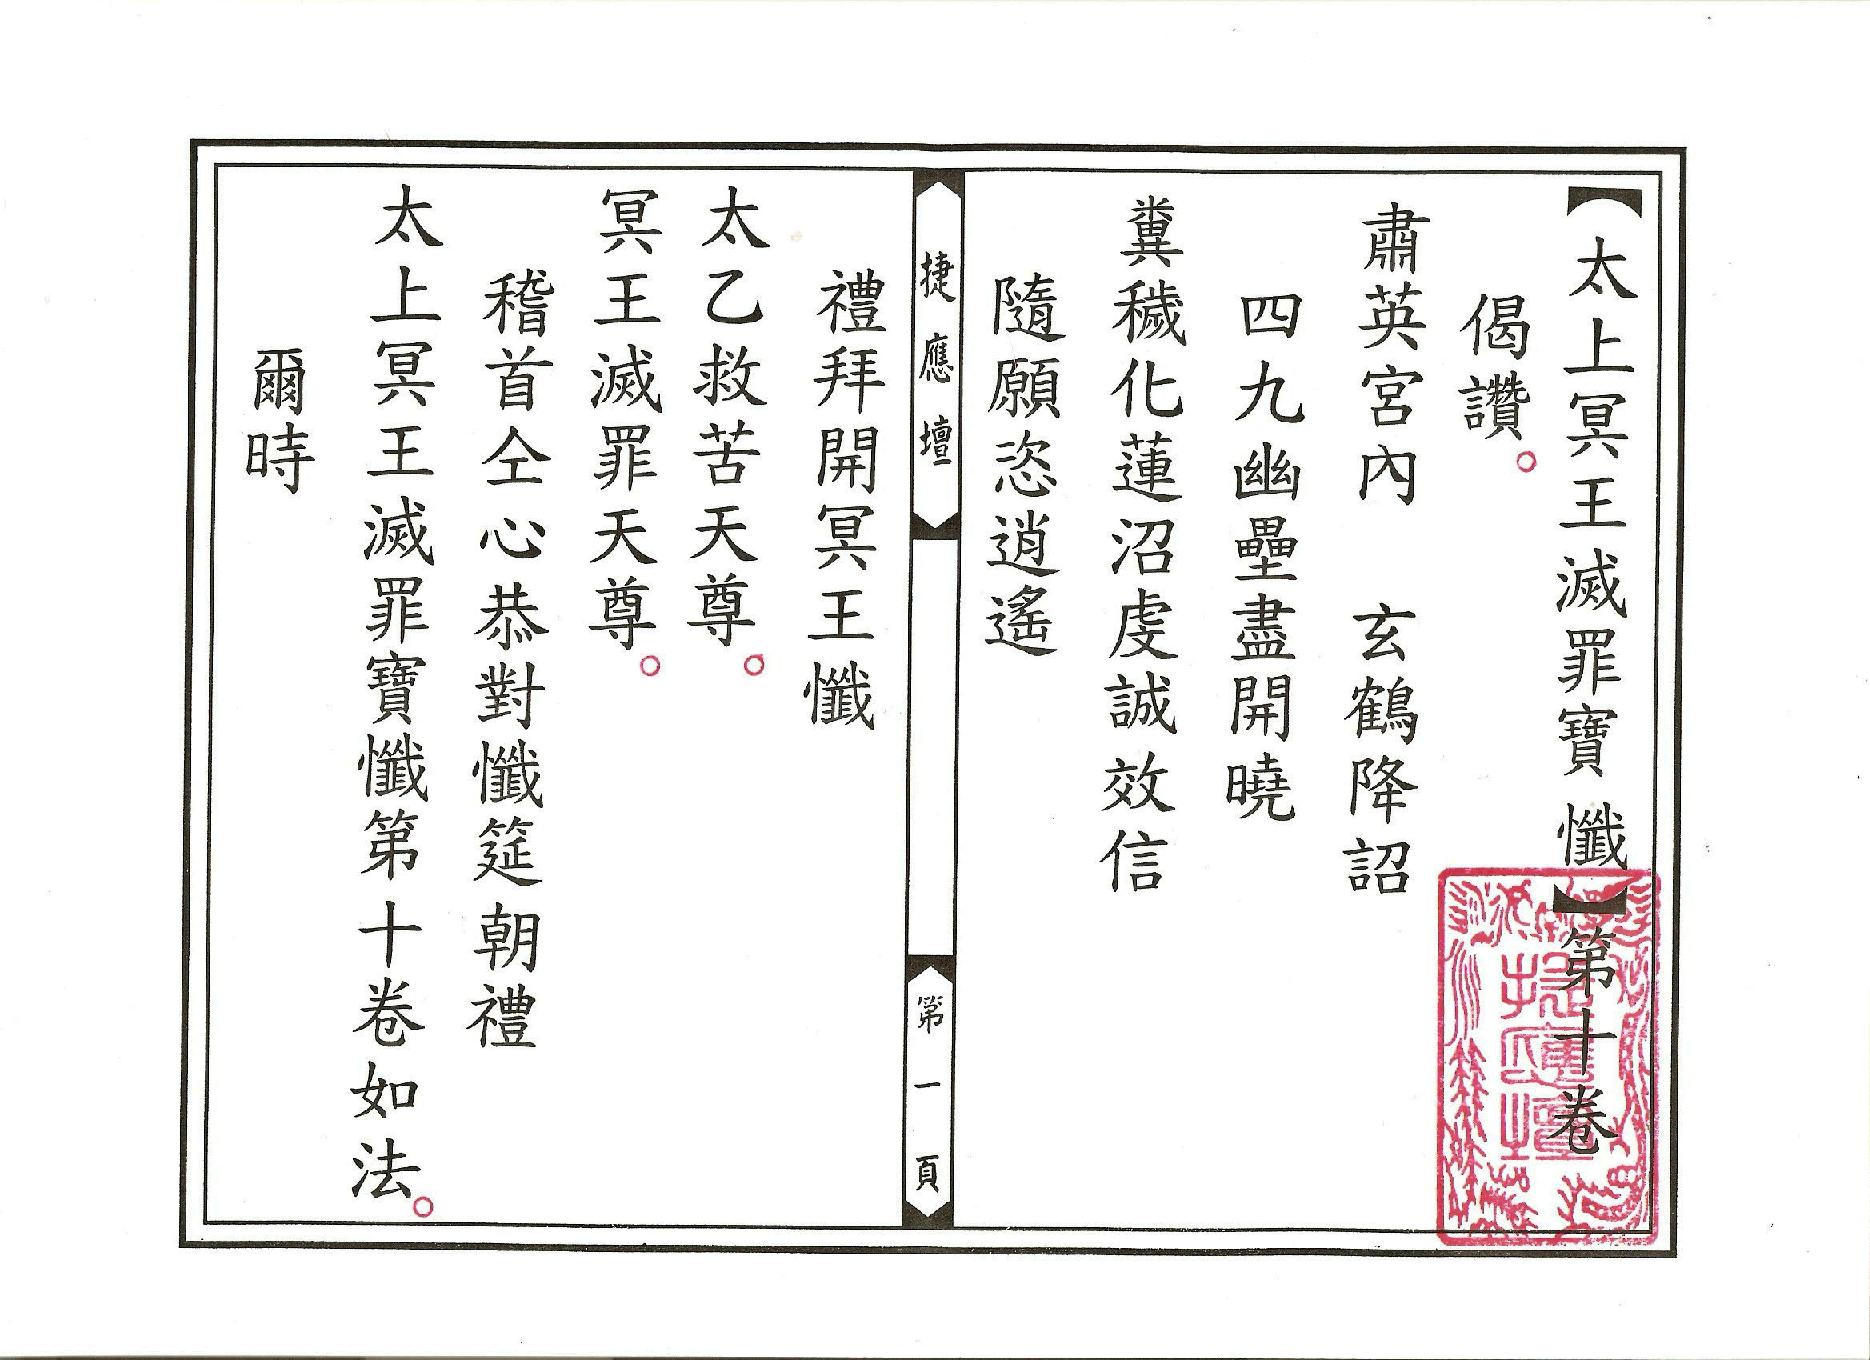 【太上冥王滅罪寶懺】第十卷
偈讚。
肅英宮內　玄鶴降詔
四九幽壘盡開曉
糞穢化蓮沼虔誠效信
隨願恣逍遙
捷應壇
第一頁
禮拜開冥王懺
太乙救苦天尊。
冥王滅罪天尊。
稽首仝心恭對懺筵朝禮
太上冥王滅罪寶懺第十卷如法。
爾時
捷應壇